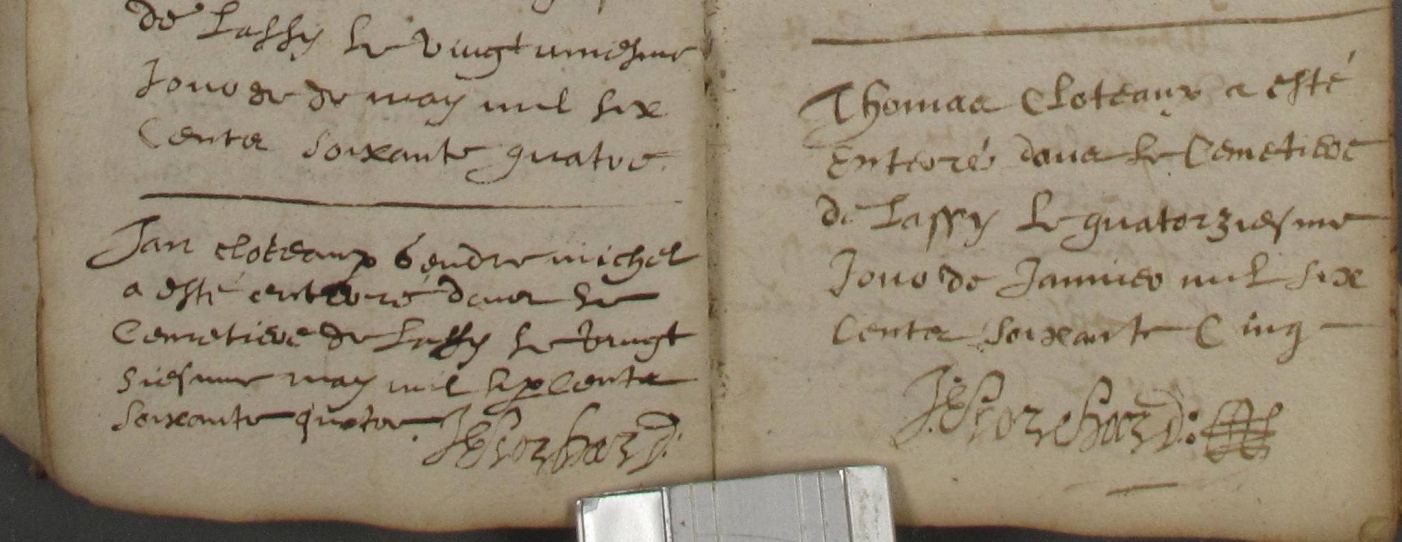 de Lassy le vingt uniesme
Jour de de may mil six
Cents soixante quatre.
Jan cloteaux Gendre michel
a esté enterré dans le
Cemetiere de Lassy le vingt
siesme may mil six Cents
soixante quatre.
Thomas Cloteaux a esté
Enterré dans le Cemetiere
de Lassy le quatorziesme
Jour de Januier mil six
Cents soixante Cinq